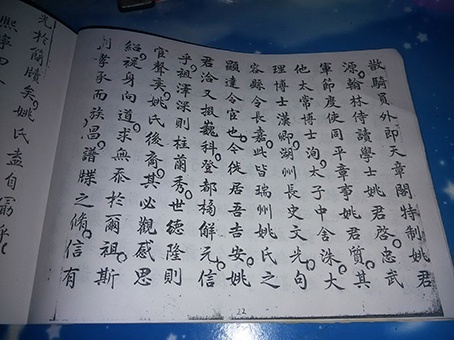 散騎員外郎天章閣特制姚君
源翰林侍讀學士姚君啓忠武
軍節度使同平章事姚君質其
他太常博士洵太子中舍洙大
理博士漢卿湖州長史文光句
容縣令長嘉此皆瑞州姚氏之
顯達令官也今徙居吾吉安姚
君洽又掇巍科登都橘解元信
乎祖澤深則桂蘭秀世德隆則
官聲奕姚氏後裔其必觀感思
紹禔身向道求無忝於爾祖斯
孝承而族昌譜牒之脩信有
光於簡牘矣姚氏盍自勗乎
熙寧四
22